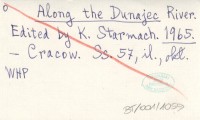 Along the Dunajec River.
Edited by K. Starmach. 1965.
– Cracow. Ss. 57, il., okł.
WHP